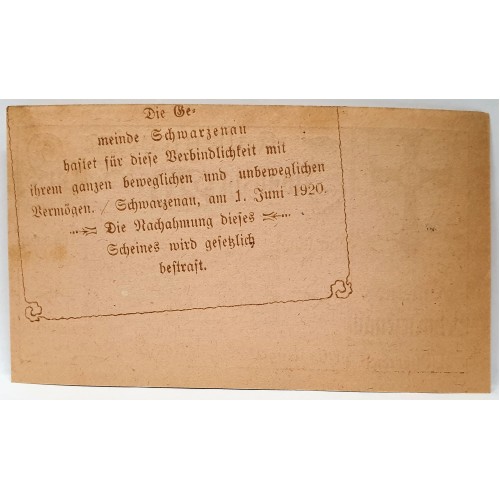 Die Ge-
meinde Schwarzenau
haftet für diese Verbindlichkeit mit
ihrem ganzen beweglichen und unbeweglichen
Vermögen. / Schwarzenau, am 1. Juni 1920.
Die Nachahmung dieses
Scheines wird gesetzlich
bestraft.